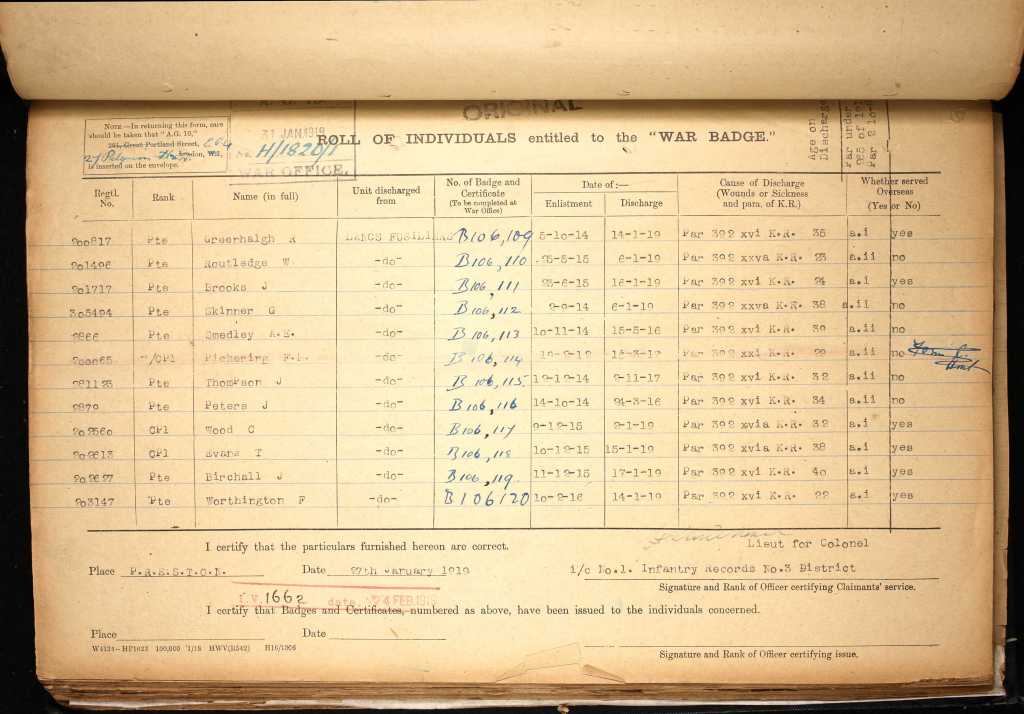 ORIGINAL
NOTE.—In returning this form, care
should be taken that "A.G. 10,"
Great Portland Street,
London, W.1,
is inserted on the envelope.
31 JAN 1919
H/1820/1
WAR OFFICE.
ROLL OF INDIVIDUALS entitled to the "WAR BADGE."
Age on Discharge
Par under
Regtl. No. Rank Name (in full) Unit discharged from No. of Badge and Certificate (To be completed at War Office) Date of:— Enlistment Discharge Cause of Discharge (Wounds or Sickness and para. of K.R.) Whether served Overseas (Yes or No)
200817 Pte Greenhalgh R LANCS FUSILIERS B106,109 5-10-14 14-1-19 Par 392 xvi K.R. 35 a.i yes
201496 Pte Routledge W -do- B106,110 6-1-19 Par 392 xxva K.R. 23 a.ii no
201717 Pte Brooks J -do- B106,111 23-6-15 Par 392 xvi K.R. 24 a.i yes
305494 Pte Skinner G -do- B106,112 6-1-19 Par 392 xxva K.R. 38 a.ii no
2866 Pte Smedley -do- B106,113 10-11-14 15-5-16 Par 392 xvi K.R. a.ii no
Pickering -do- B106,114 Par 392 xvi K.R. a.ii no
281123 Pte Thompson J -do- B106,115 12-12-14 2-11-17 Par 392 xvi K.R. 32 a.ii no
2879 Pte Peters J -do- B106,116 14-10-14 24-3-16 Par 392 xvi K.R. 34 a.ii no
202560 CPl Wood C -do- B106,117 9-12-15 2-1-19 Par 392 xvia K.R. 32 a.i yes
202613 CPl Evans T -do- B106,118 10-12-15 15-1-19 Par 392 xvia K.R. 38 a.i yes
202627 Pte Birchall J -do- B106,119 11-12-15 17-1-19 Par 392 xvi K.R. 40 a.i yes
203147 Pte Worthington F -do- B106120 10-2-16 14-1-19 Par 392 xvi K.R. 22 a.i yes
I certify that the particulars furnished hereon are correct.
Lieut for Colonel
Place P.R.E.S.T.O.N. Date 27th January 1919
i/c No.1. Infantry Records No.3 District
Signature and Rank of Officer certifying Claimants' service.
I.V. 1662 date 24 FEB 1919
I certify that Badges and Certificates, numbered as above, have been issued to the individuals concerned.
Place Date
W4134—HP1023 100,000 1/18 HWV(R542) H16/1006
Signature and Rank of Officer certifying issue.